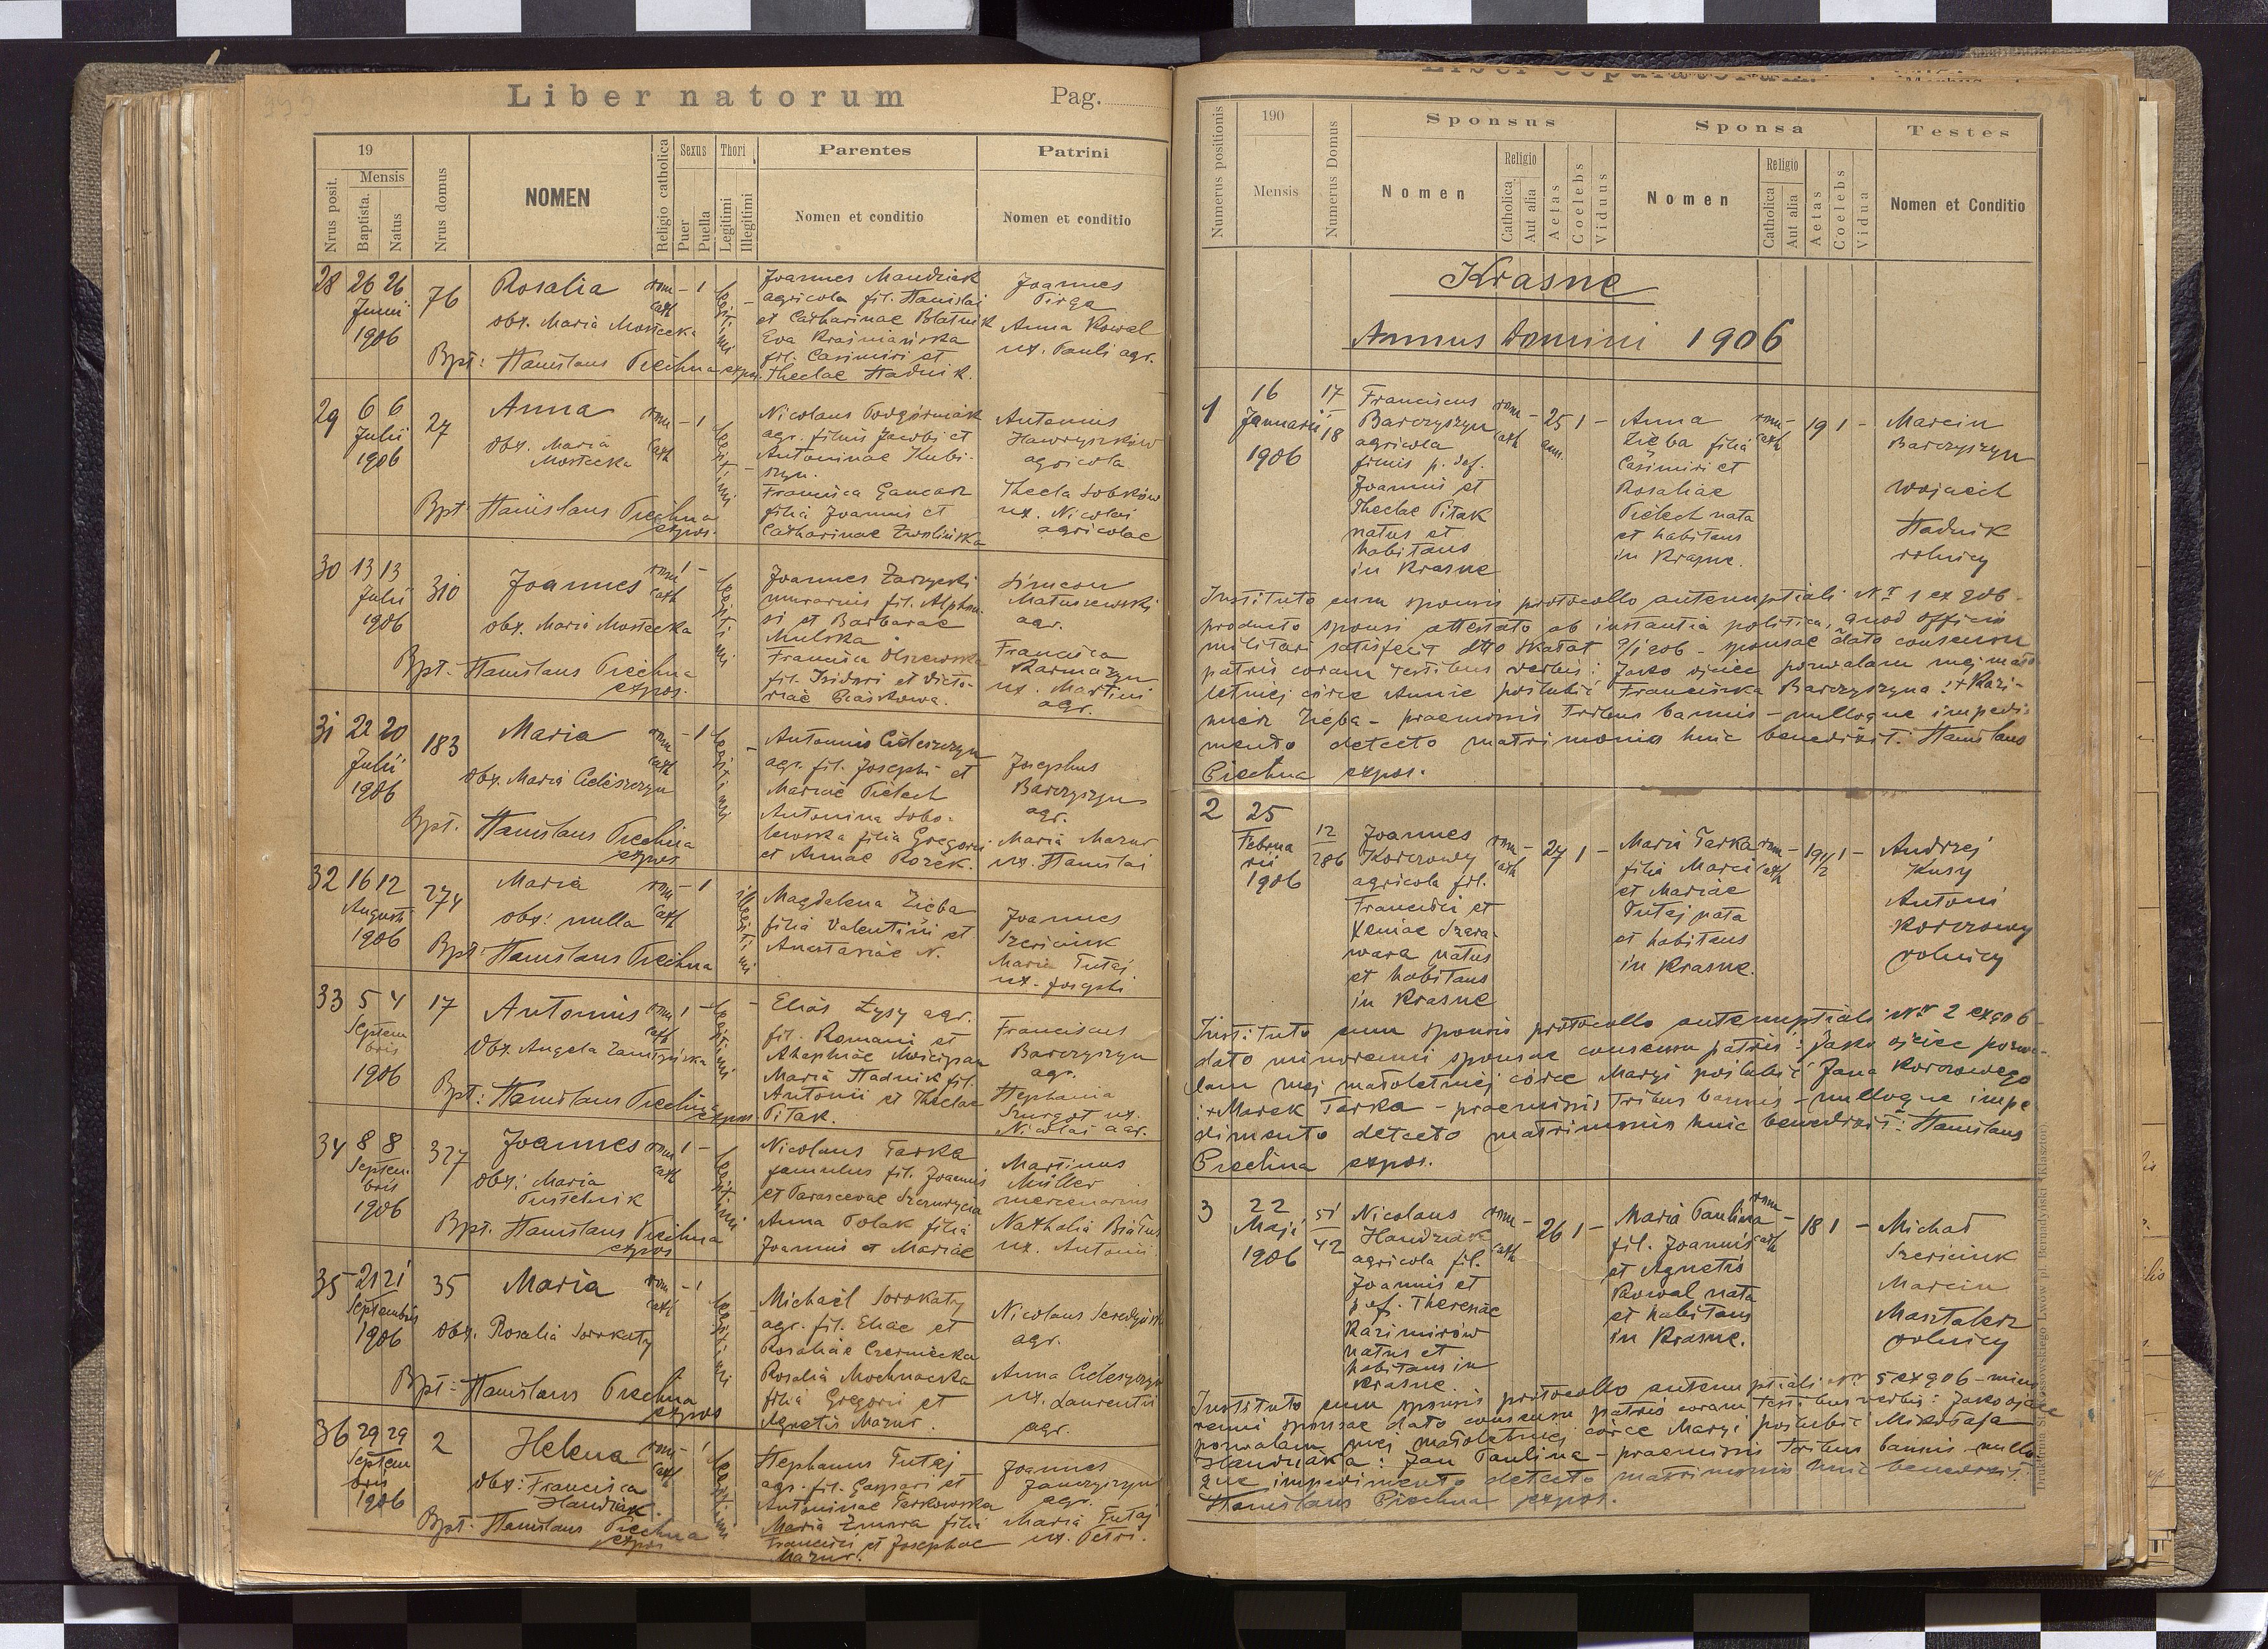 Liber natorum
Pag.
19
Mensis
Nrus posit.
Baptista.
Natus
Nrus domus
NOMEN
Religio catholica
Sexus
Puer
Puella
Thori
Legitimi
Illegitimi
Parentes
Nomen et conditio
Patrini
Nomen et conditio
28 26 26 76 Rosalia rom - 1
Junii cath
1906 obx. Maria Mostecka
Bpt: Stanislaus Piechna expos.
legitimi
Joannes Mandziak
agricola fil. Stanislai
et Catharinae Blatnik
Eva Krasniańska
fil. Casimiri et
Theclae Stadnik.
Joannes
Pirga
Anna Kowal
ux. Pauli agr.
29 6 6 27 Anna rom - 1
Julii obx. Maria cath
1906 Mostecka
Bpt: Stanislaus Piechna
expos.
legitimi
Nicolaus Podgórniak
agr. filius Jacobi et
Antoninae Kubi-
szyn.
Francisca Gancarz
filia Joannis et
Catharinae Zwolińska
Antonius
Hawryszków
agricola
Thecla Sobków
ux. Nicolai
agricolae
30 13 13 310 Joannes rom 1 -
Julii cath
1906 obx. Maria Mostecka
Bpt: Stanislaus Piechna
expos.
legitimi
Joannes Zarzycki
murarius fil. Alphon-
si et Barbarae
Mulska.
Francisca Olszewska
fil. Isidori et Victo-
riae
Simeon
Matuszewski
agr.
Francisca
Karmazyn
ux. Martini
agr.
31 22 20 183 Maria rom - 1
Julii cath
1906 obx. Maria Cideszczyn
Bpt. Stanislaus Piechna
expos
legitimi
Antonius Cideszczyn
agr. fil. Josephi et
Mariae Pielech
Antonina Sobo-
lewska filia Gregorii
et Annae Rożek.
Josephus
Barczyszyn
agr.
Maria Mazur
ux. Stanislai
32 16 12 274 Maria rom - 1
Augusti cath
1906 obx: nulla
Bpt: Stanislaus Piechna
illegitimi
Magdalena Zięba
filia Valentini et
Anastasiae N.
Joannes
Szersciuk
Maria Tutaj
ux. Josephi
33 5 4 17 Antonius rom 1 -
Septem cath
bris Obx. Angela
1906
Bpt: Stanislaus Piechna expos
legitimi
Elias Łysy agr.
fil. Romani et
Ahaphiae
Maria Stadnik fil.
Antonii et Theclae
Pitak.
Franciscus
Barczyszyn
agr.
Stephania
Szurgot ux.
Nicolai agr.
34 8 8 327 Joannes rom 1 -
Septem- cath
bris obx: Maria
1906 Pustelnik
Bpt. Stanislaus Piechna
expos
legitimi
Nicolaus Tarka
famulus fil. Joannis
et Parascevae
Anna Polak filia
Joannis et Mariae
Martinus
Müller
mercenarius
Nathalia
ux. Antonii
35 21 21 35 Maria rom - 1
Septembris cath
1906 obx. Rosalia Sorokaty
Bpt: Stanislaus Piechna
expos
legitimi
Michael Sorokaty
agr. fil. Eliae et
Rosaliae Czernecka
Rosalia Mochnacka
filia Gregorii et
Agnetis Mazur.
Nicolaus
agr.
Anna Cideszczyn
ux. Laurentii
agr.
36 29 29 2 Helena rom - 1
Septem cath
bris obx: Francisca
1906 Handziak.
Bpt. Stanislaus Piechna
expos
legitimi
Stephanus Tutaj
agr. fil. Gaspari et
Antoninae Tarkowska
Maria Żmura filia
Francisci et Josephae
Mazur.
Joannes
Janczyszyn
agr.
Maria Tutaj
ux. Petri.
Liber Copulatorum.
Numerus positionis
190
Mensis
Numerus Domus
Sponsus
Nomen
Religio
Catholica
Aut alia
Aetas
Coelebs
Viduus
Sponsa
Nomen
Religio
Catholica
Aut alia
Aetas
Coelebs
Vidua
Testes
Nomen et Conditio
Krasne
Annus Domini 1906
1 16 17
Januarii 18
1906
Franciscus
Barczyszyn
agricola
filius p. def.
Joannis et
Theclae Pitak
natus et
habitans
in Krasne
rom cath - 25 ann. 1 -
Anna
Zięba filia
Casimiri et
Rosaliae
Pielech nata
et habitans
in Krasne.
rom cath - 19 1 -
Marcin
Barczyszyn
Wojciech
Stadnik
rolnicy
Instituto cum sponsis protocollo antenuptiali Nr 1 ex 906 -
producto sponsi attestato ab instantia politica, quod officio
militari satisfecit dtto Skałat 9/1 906 - sponsae dato consensu
patris coram testibus verbis: Jako ojciec pozwalam mej mało
letniej córce Annie poślubić Franciszka Barczyszyna : + Kazi-
mierz Zięba - praemissis tribus bannis - nulloque impedi-
mento detecto matrimonio huic benedixit: Stanislaus
Piechna expos.
2 25 12
Februa 286
rii
1906
Joannes
Korczowy
agricola fil.
Francisci et
Xeniae Szara-
wara natus
et habitans
in Krasne
rom cath - 27 1 -
Maria Tarka
filia Marci
et Mariae
Tutaj nata
et habitans
in Krasne.
rom cath - 19 1/2 1 -
Andrzej
Kusy
Antoni
Korczowy
rolnicy
Instituto cum sponsis protocollo antenuptiali Nr 2 ex 906 -
dato minorenni sponsae consensu patris: Jako ojciec pozwa-
lam mej małoletniej córce Maryi poślubić Jana Korczowego
: + Marek Tarka - praemissis tribus bannis - nulloque impe
dimento detecto matrimonio huic benedixit: Stanislaus
Piechna expos.
3 22 51
Maji 42
1906
Nicolaus
Handziak
agricola fil.
Joannis et
p. def. Theresiae
Kazimirów
natus et
habitans in
Krasne.
rom cath - 26 1 -
Maria Paulina
fil. Joannis
et Agnetis
Kowal nata
et habitans
in Krasne.
rom cath - 18 1 -
Michał
Szersciuk
Marcin
Masztalerz
rolnicy
Instituto cum sponsis protocollo antenuptiali Nr 5 ex 906 - mino
renni sponsae dato consensu patris coram testibus verbis: Jako ojciec
pozwalam mej małoletniej córce Maryi poślubić Mikołaja
Handziaka: Jan Paulina - praemissis tribus bannis - nullo
que impedimento detecto matrimonio huic benedixit:
Stanislaus Piechna expos.